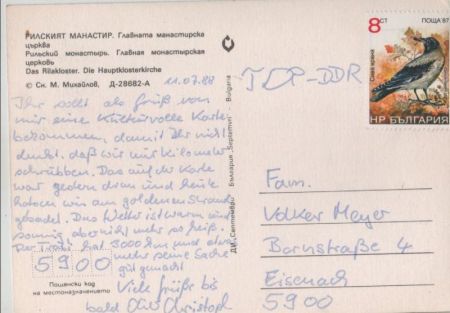 РИЛСКИЯТ МАНАСТИР. Главната манастирска
църква
Рильский монастырь. Главная монастырская
церковь
Das Rilakloster. Die Hauptklosterkirche
© Сн. М. Михайлов, Д-28682-А
11.07.88
Ihr sollt als Grüß von
mir eine Kulturvolle Karte
bekommen, damit Ihr nicht
denkt, daß wir nur Kilometer
schrubben. Das auf der Karte
war gestern dran und heute
haben wir am goldenen Strand
gebadet. Das Wetter ist warm und
sonnig aber nicht mehr so heiß.
Der Trabi hat 3000 km und
mehr seine Sache
gut gemacht
Viele Grüße bis
bald Christoph
5900
Пощенски код
на местоназначението
ДИ „Септември" България „Septemvri" - Bulgaria
DDR
8 СТ
ПОЩА '87
Сива врана
БЪЛГАРИЯ
Fam.
Volker Meyer
Bornstraße 4
Eisenach
5900